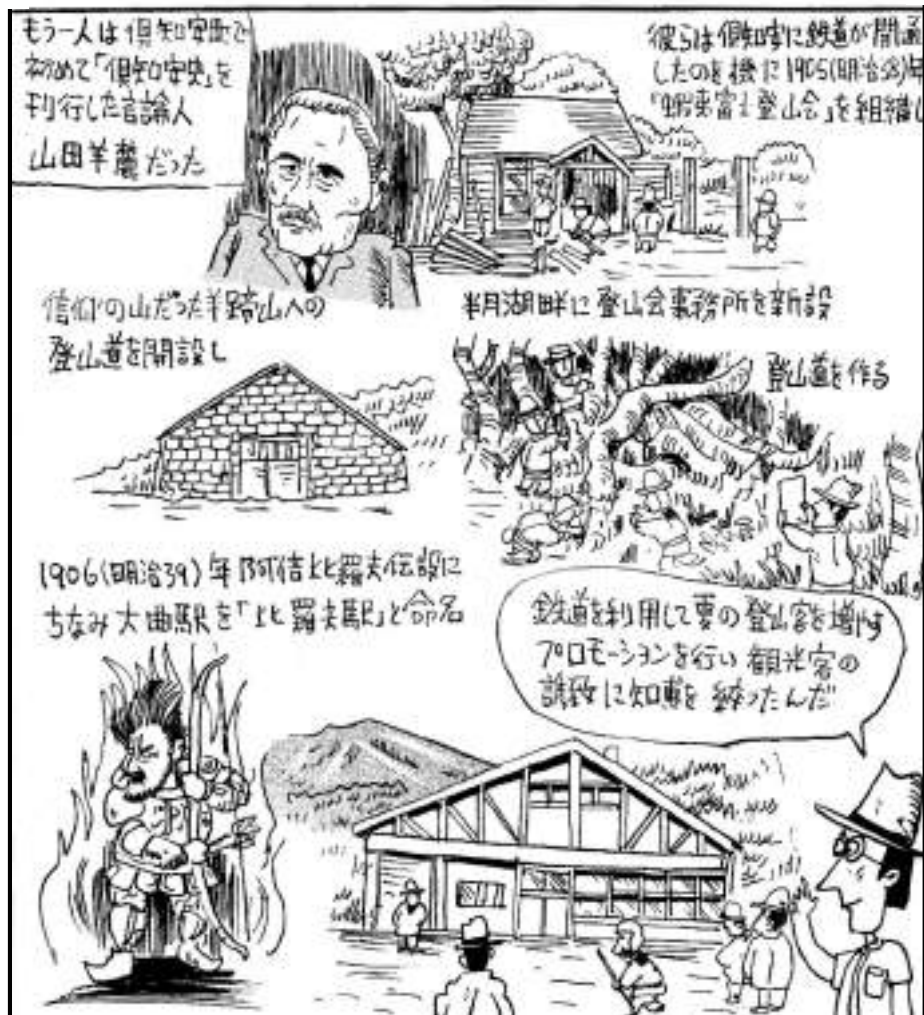 もう一人は倶知安町で
初めて「倶知安史」を
刊行した言論人
山田羊麓だった
彼らは倶知安に鉄道が開通
したのを機に1905(明治38)年
「蝦夷富士登山会」を組織し
信仰の山だった羊蹄山への
登山道を開設し
半月湖畔に登山会事務所を新設
登山道を作る
1906(明治39)年阿倍比羅夫伝説に
ちなみ大曲駅を「比羅夫駅」と命名
鉄道を利用して夏の登山客を増やす
プロモーションを行い観光客の
誘致に知恵を絞ったんだ